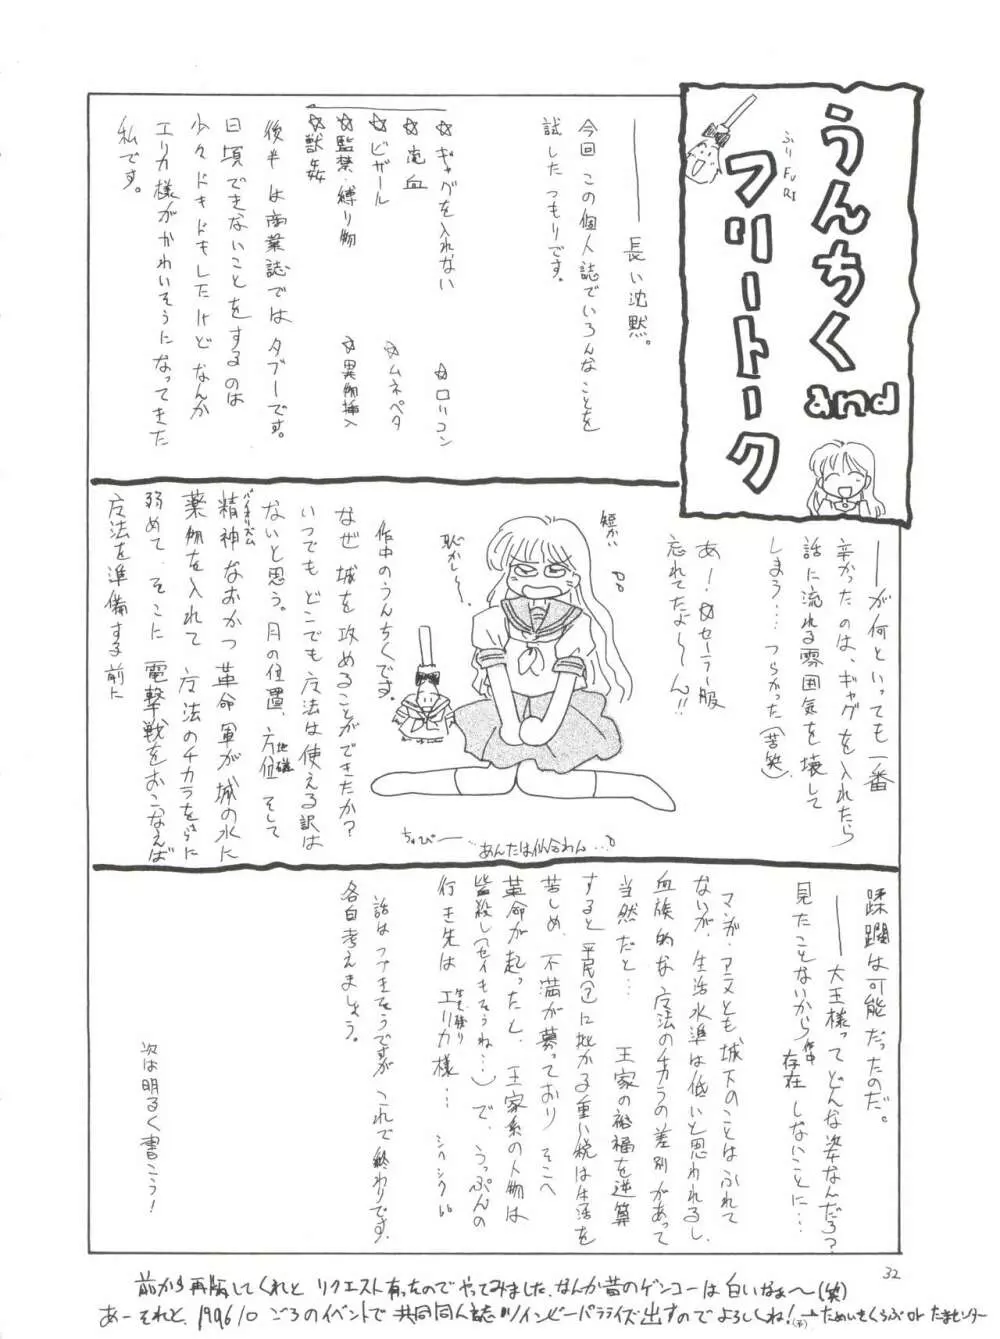 うんちく
and
フリートーク
ふり FU RI
――― 長い沈黙。
今回 この個人誌でいろんなことを
試したつもりです。
☆ギャグを入れない
☆ロリコン
☆流血
☆ムネペタ
☆ビザール
☆異物挿入
☆監禁・縛り物
☆獣姦
後半は商業誌ではタブーです。
日頃できないことをするのは
少々ドキドキもしたけど なんか
エリカ様がかわいそうになってきた
私です。
――が何といっても一番
辛かったのは、ギャグを入れたら
話に流れる雰囲気を壊して
しまう… つらかった(苦笑)
あ!☆セーラー服
忘れてたよ〜ん!!
短かい
恥かし〜
ちゅぴ――
あんたは似合わん…
作中のうんちくです。
なぜ城を攻めることができたか?
いつでもどこでも方法は使える訳は
ないと思う。月の位置、方位 地磁 そして
精神 バイオリズム なおかつ革命軍が城の水に
薬物を入れて 方法のチカラをさらに
弱めて、そこに電撃戦をおこなえば
方法を準備する前に
蹂躙は可能だったのだ。
――大王様ってどんな姿なんだろ?
見たことないから作中存在しないことに…
マンガ・アニメとも城下のことはふれて
ないが、生活水準は低いと思われるし
血族的な方法のチカラの差別があって
当然だと… 王家の裕福を逆算
すると平民(?)に掛かる重い税は生活を
苦しめ、不満が募っており そこへ
革命が起ったと、王家系の人物は
皆殺し(セイもそうね…)で、うっぷんの
行き先は 生き残り エリカ様… シクシク
話はつづきそうですが これで終わりです。
各自考えましょう。
次は明るく書こう!
32
前から再版してくれと リクエスト有ったのでやってみました、なんか昔のゲンコーは白いなぁ〜(笑)
あーそれと、1996/10 ごろのイベントで共同同人誌ツインビーパラダイズ出すのでよろしくね!